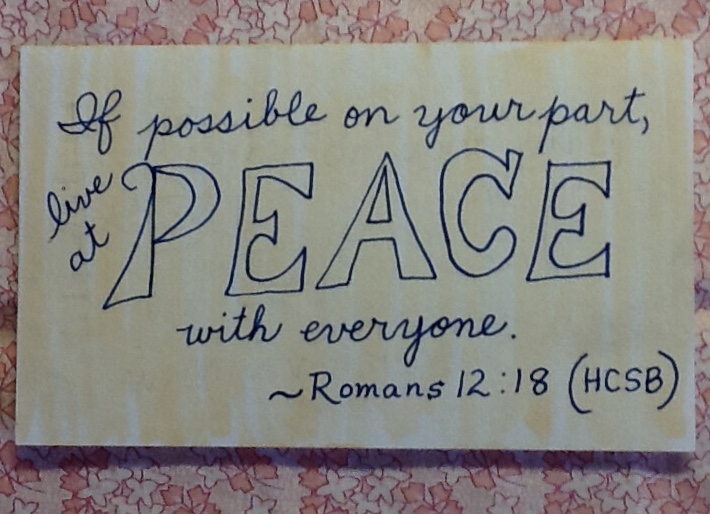 If possible on your part,
live
at
PEACE
with everyone.
~Romans 12:18 (HCSB)